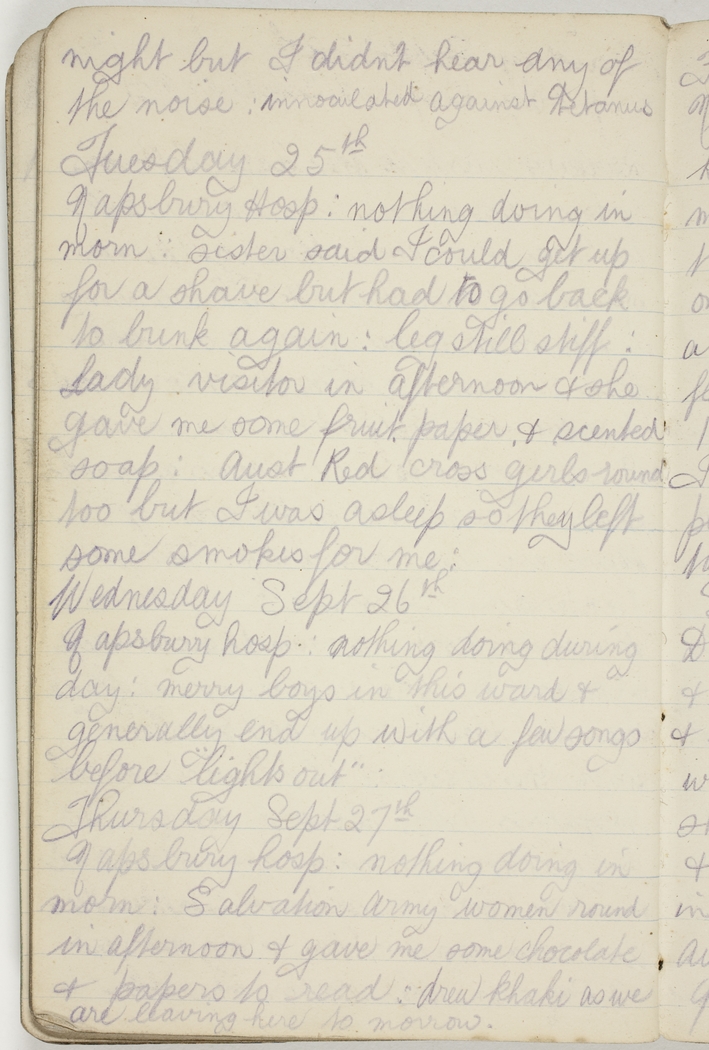 night but I didn't hear any of
the noise : innoculated against Tetanus
Tuesday 25th
Gapsbury Hosp : nothing doing in
morn : sister said I could get up
for a shave but had to go back
to bunk again : leg still stiff :
Lady visitor in afternoon & she
gave me some fruit paper & scented
soap : Aust Red cross girls round
too but I was asleep so they left
some smokes for me :
Wednesday Sept 26th
Gapsbury hosp : nothing doing during
day : merry boys in this ward &
generally end up with a few songs
before "lights out" :
Thursday Sept 27th
Gapsbury hosp : nothing doing in
morn : Salvation Army women round
in afternoon & gave me some chocolate
& papers to read : drew khaki as we
are leaving here to morrow.